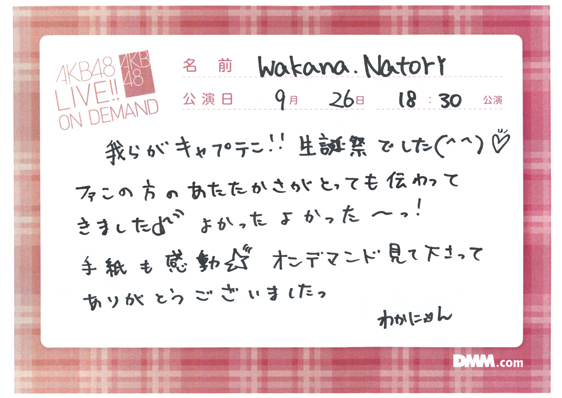 AKB48
LIVE!!
ON DEMAND
AKB
48
名前 Wakana.Natori
公演日 9月 26日 18:30 公演
我らがキャプテン!! 生誕祭でした(^^)♡
ファンの方のあたたかさがとっても伝わって
きました♪ よかったよかった〜っ!
手紙も感動☆ オンデマンド見て下さって
ありがとうございましたっ
わかにゃん
DMM.com